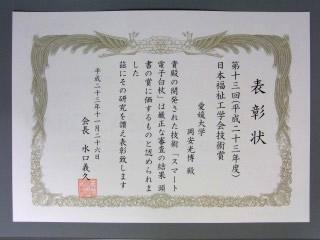 表彰状
第十三回(平成二十三年度)
日本福祉工学会技術賞
愛媛大学
岡安光博 殿
貴殿の開発された技術「スマート
電子白杖」は厳正な審査の結果 頭
書の賞に価するものと認められま
した
茲にその研究を讃え表彰致します
平成二十三年十一月二十六日
会長 水口義久